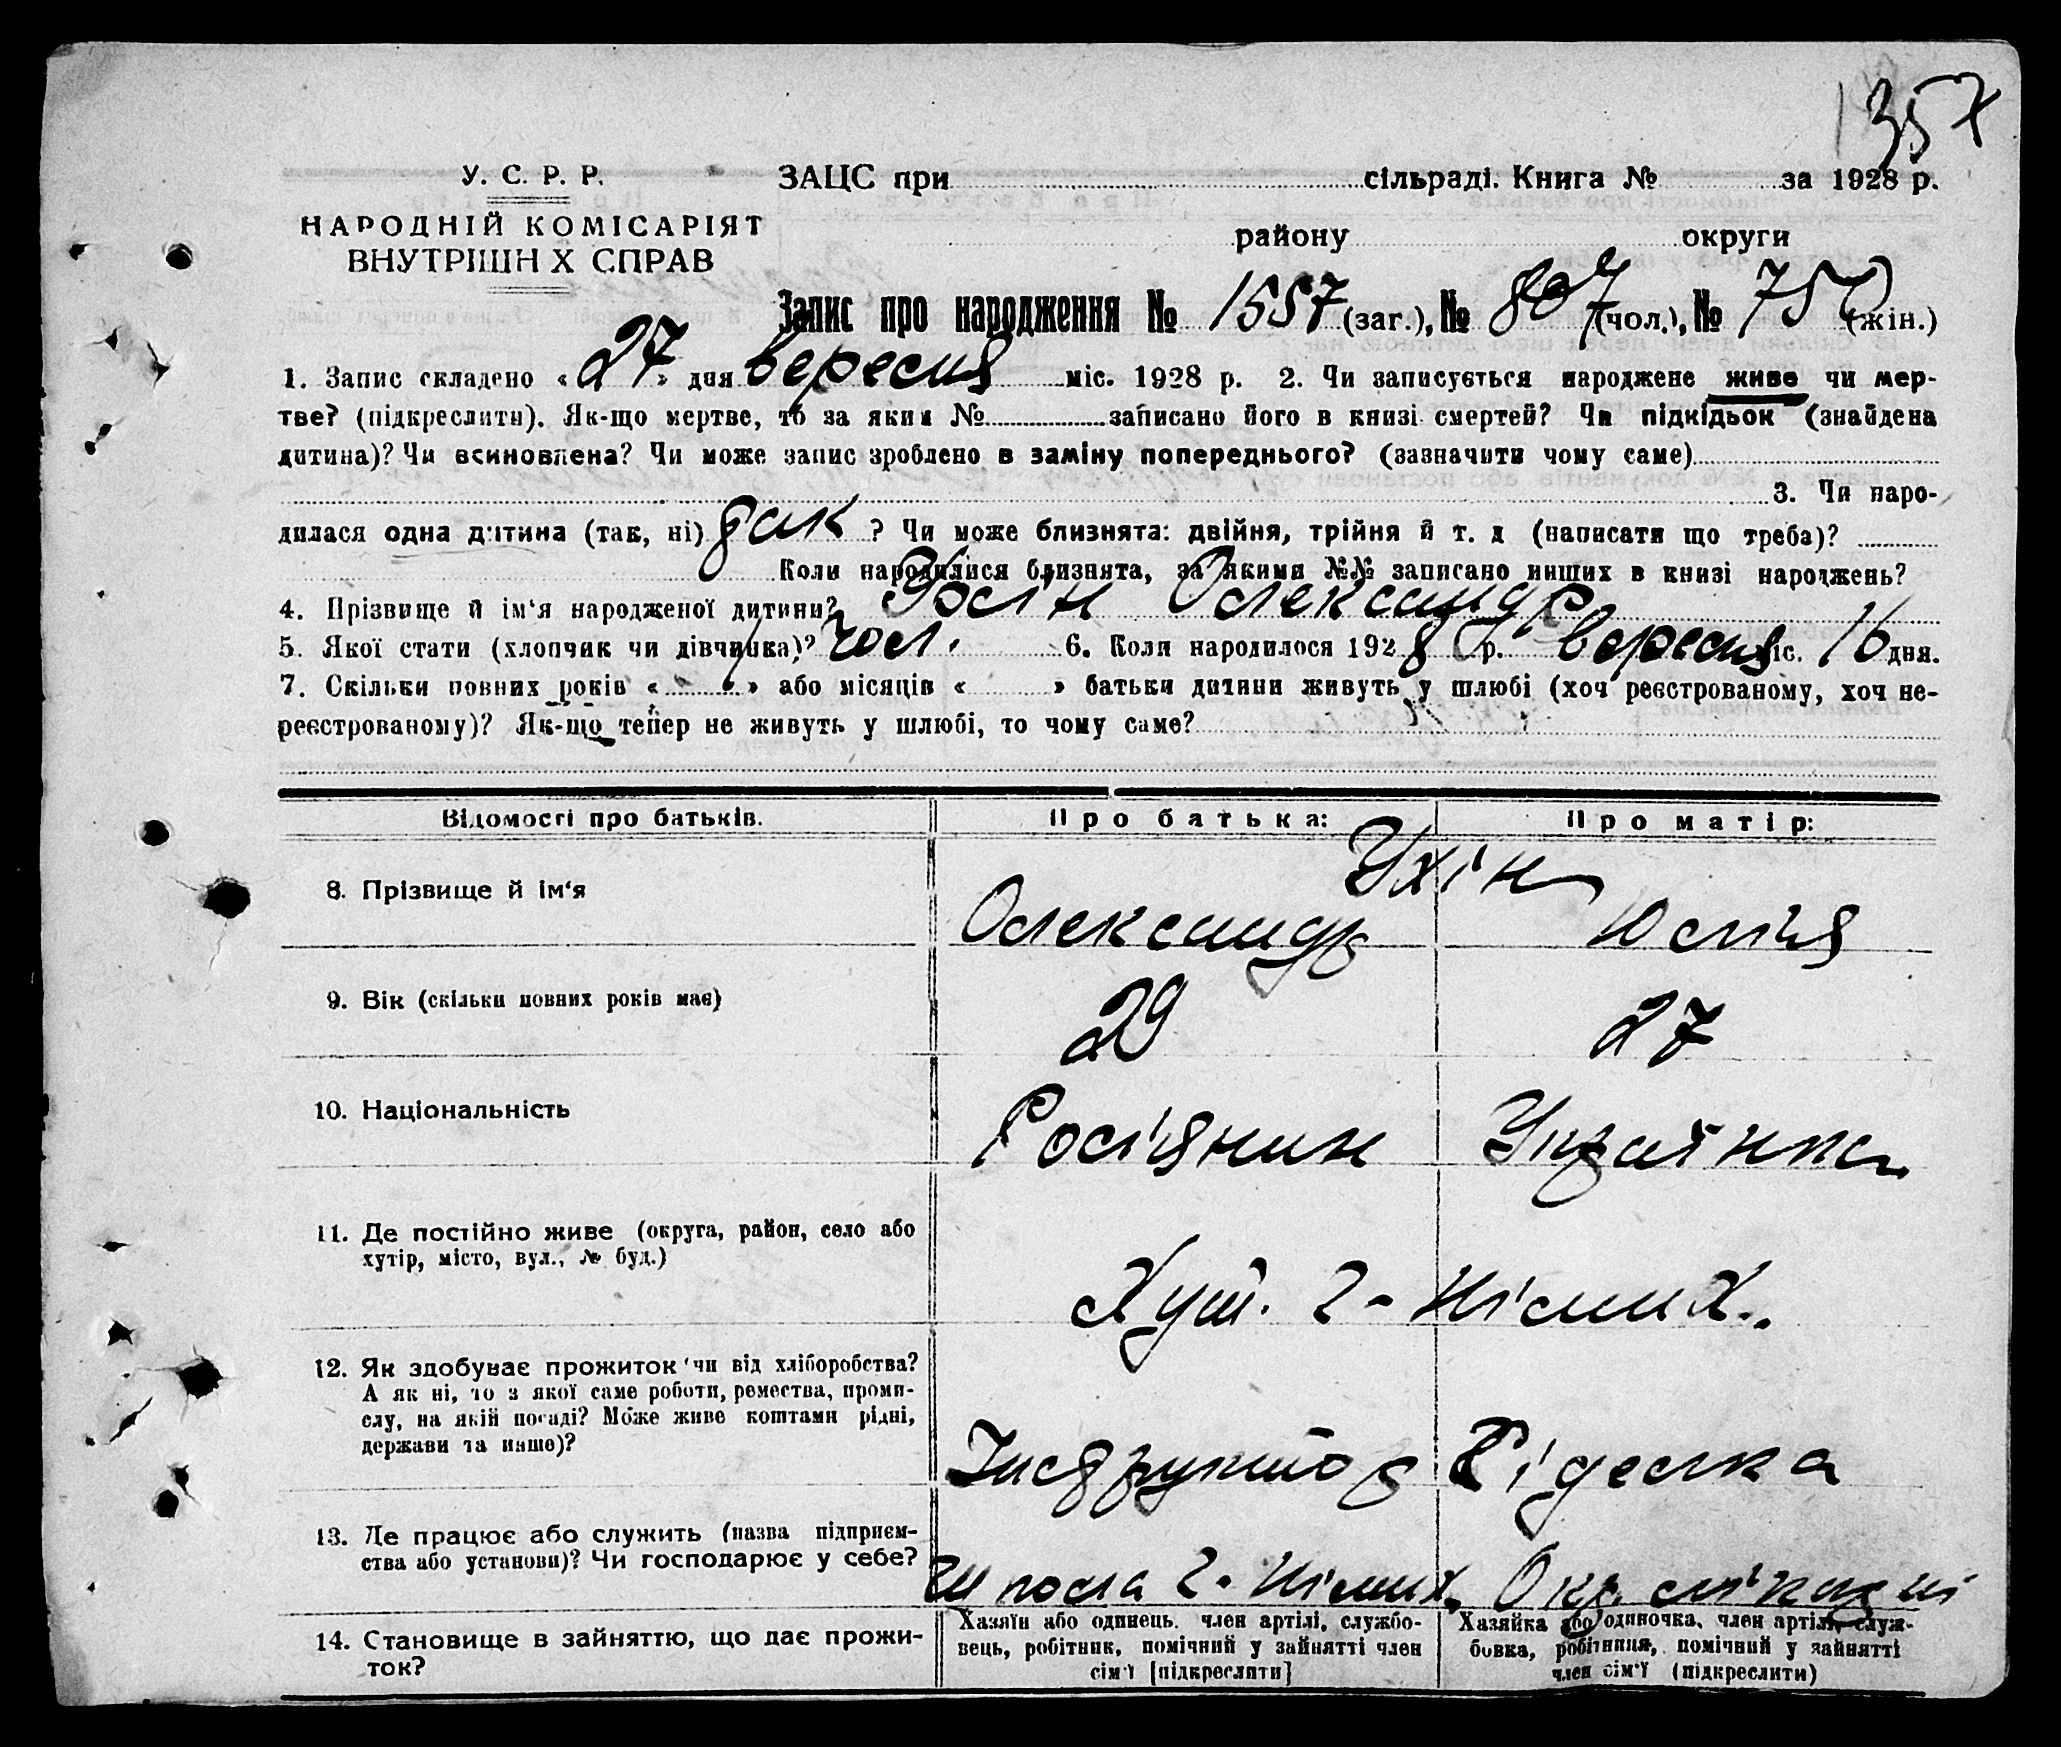 357
У. С. Р. Р.
НАРОДНІЙ КОМІСАРІЯТ
ВНУТРІШН Х СПРАВ
ЗАЦС при сільраді. Книга № за 1928 р.
району округи
Запис про народження № 1557 (заг.), № 807 (чол.), № 750 (жін.)
1. Запис складено « 27 » дня вересня міс. 1928 р. 2. Чи записується народжене живе чи мер-
тве? (підкреслити). Як-що мертве, то за яким № записано його в книзі смертей? Чи підкідьок (знайдена
дитина)? Чи всиновлена? Чи може запис зроблено в заміну попереднього? (зазначити чому саме)
3. Чи наро-
дилася одна дитина (так, ні) так ? Чи може близнята: двійня, трійня й т. д (написати що треба)?
Коли народилися близнята, за якими №№ записано инших в книзі народжень?
4. Прізвище й ім'я народженої дитини? Олександр
5. Якої стати (хлопчик чи дівчинка)? чол. 6. Коли народилося 1928 р. вересня міс. 16 дня.
7. Скільки повних років « » або місяців « » батьки дитини живуть у шлюбі (хоч реєстрованому, хоч не-
реєстрованому)? Як-що тепер не живуть у шлюбі, то чому саме?
Відомості про батьків. Про батька: Про матір:
Ухін
8. Прізвище й ім'я Олександр Юлія
9. Вік (скільки повних років має) 29 27
10. Національність Росіянин Українка
11. Де постійно живе (округа, район, село або
хутір, місто, вул., № буд.)
Хут. 2-
12. Як здобуває прожиток чи від хліборобства?
А як ні, то з якої саме роботи, ремества, проми-
слу, на якій посаді? Може живе коштами рідні,
держави та инше)?
Інструктор
13. Де працює або служить (назва підприєм-
ства або установи)? Чи господарює у себе?
Окр.
14. Становище в зайняттю, що дає прожи-
ток?
Хазяїн або одинець. член артілі, службо-
вець, робітник, помічний у зайнятті член
сім'ї [підкреслити]
Хазяйка або одиночка, член артілі, служ-
бовка, робітниця, помічний у зайнятті
член сім'ї (підкреслити)